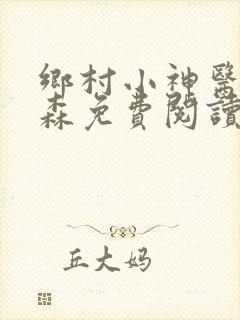 鄉村小神醫
森免費閱讀
丘大妈